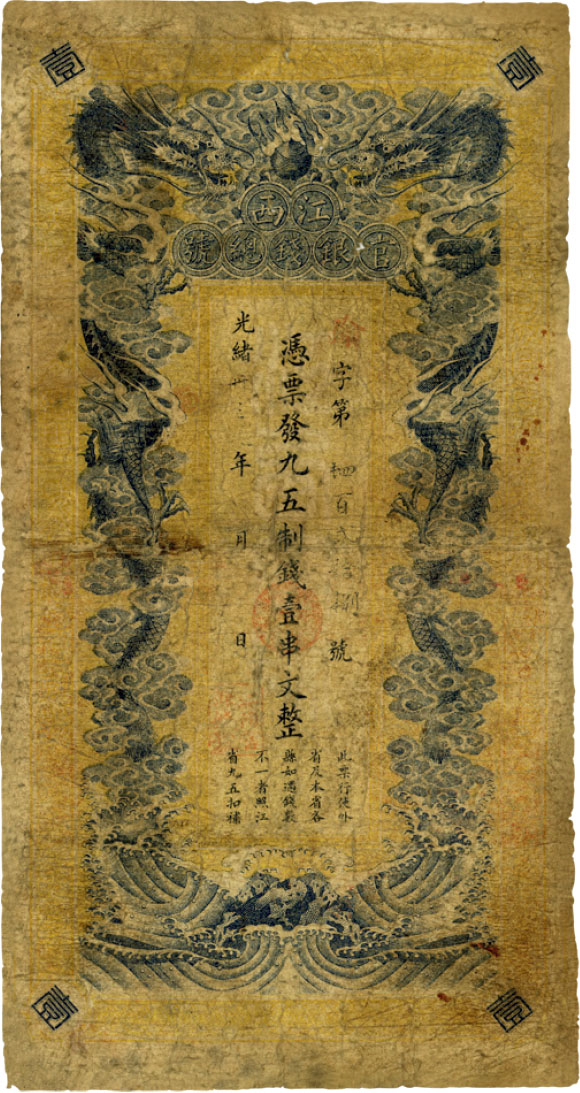 壹
壹
江西
官銀錢總號
字第 百弍拾捌號
憑票發九五制錢壹串文整
光緒卅三年 月 日
此票行使外
省及本省各
縣如遇錢
不一者照江
省九五扣補
壹
壹